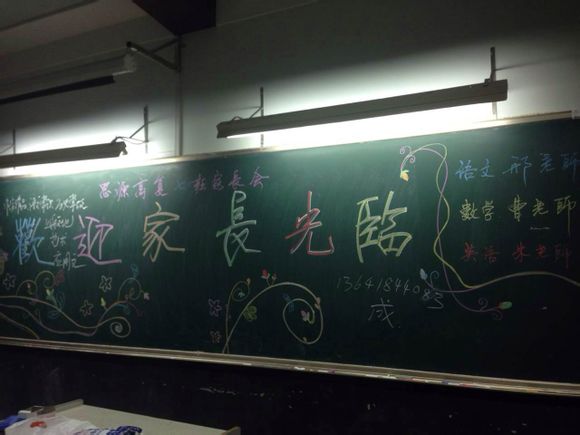 思源高复七班家长会
歡迎家長光臨
语文 邢老師
数学 曹老師
英语 朱老師
13641844083
成